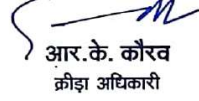 आर.के. कौरव
क्रीड़ा अधिकारी